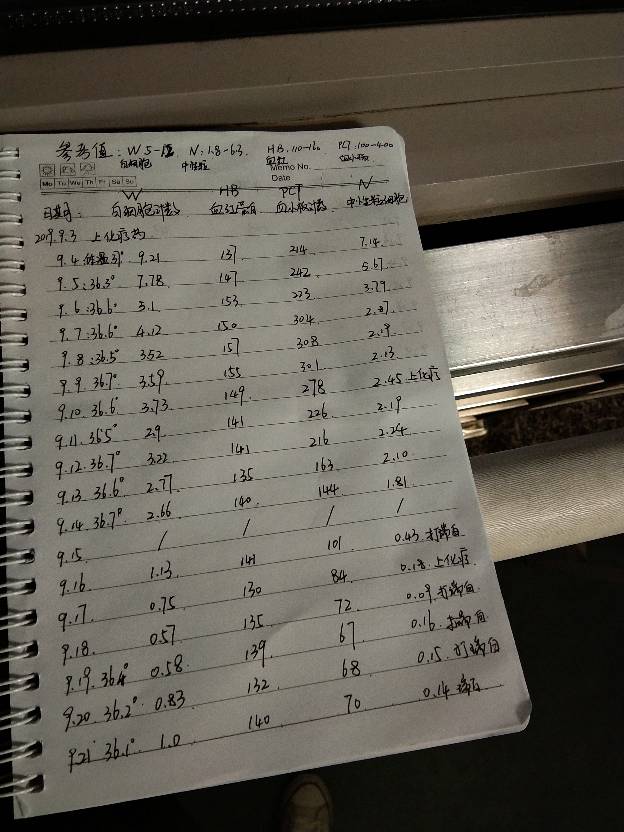 参考值: W 5-12 N:1.8-6.3 HB:110-160 PCT:100-400
白细胞 中性粒 血红 血小板
Memo No.
Mo Tu We Th Fr Sa Su Date
W HB PCT N
日期: 白细胞计数 血红蛋白 血小板计数 中性粒细胞
2019.9.3 上化疗药
9.4 体温 9.21 137 214 7.14
9.5:36.3° 7.78 147 242 5.67
9.6:36.6° 5.1 153 223 3.79
9.7:36.6° 4.12 150 304 2.07
9.8:36.5° 3.52 157 308 2.19
9.9 36.7° 3.59 155 301 2.13
9.10 36.6° 3.73 149 278 2.45 上化疗
9.11 36.5° 2.9 141 226 2.19
9.12 36.7° 3.22 141 216 2.24
9.13 36.6° 2.77 135 163 2.10
9.14 36.7° 2.66 140 144 1.81
9.15 / / / /
9.16 1.13 141 101 0.43 打瑞白
9.17 0.75 130 84 0.18 上化疗
9.18 0.57 135 72 0.09 打瑞白
9.19 36.4° 0.58 139 67 0.16 打瑞白
9.20 36.2° 0.83 132 68 0.15 打瑞白
9.21 36.1° 1.0 140 70 0.14 瑞白